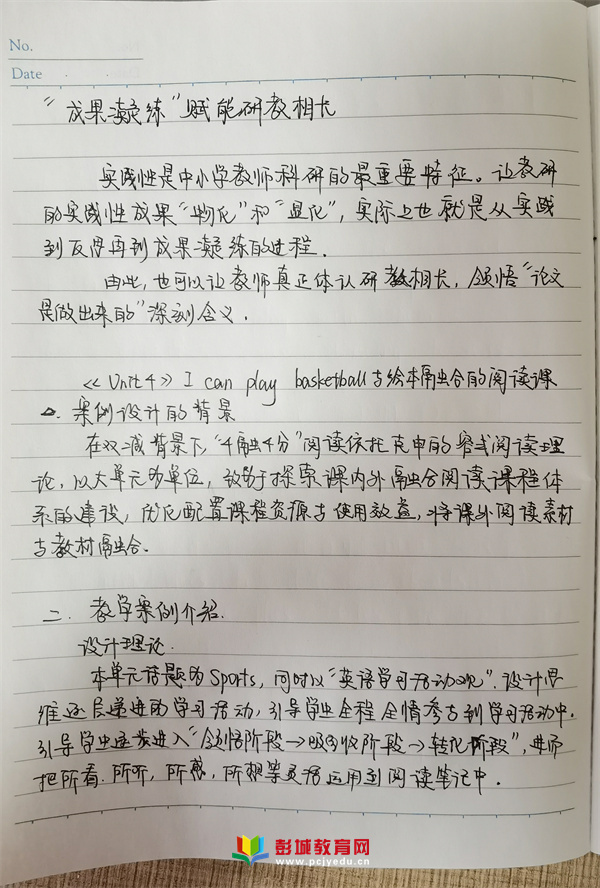 No.
Date
“成果凝练”赋能研教相长
实践性是中小学教师科研的最重要特征。让教研
的实践性成果“物化”和“显化”，实际上也就是从实践
到反思再到成果凝练的过程.
由此，也可以让教师真正体认研教相长，领悟“论文
是做出来的”深刻含义.
<< Unit4 >> I can play basketball与绘本融合的阅读课
一. 案例设计的背景
在双减背景下，“4融4分”阅读依托克申的窄式阅读理
论，以大单元为单位，致力于探索课内外融合阅读课程体
系的建设，优化配置课程资源与使用效益，将课外阅读素材
与教材融合.
二. 教学案例介绍.
设计理论.
本单元话题为Sports，同时以“英语学习活动观”.设计思
维逐层递进的学习活动，引导学生全程全情参与到学习活动中.
引导学生逐步进入“领悟阶段→吸收阶段→转化阶段”，进而
把所看.所听，所感，所想等灵活运用到阅读笔记中.
彭城教育网
www.pcjyedu.cn